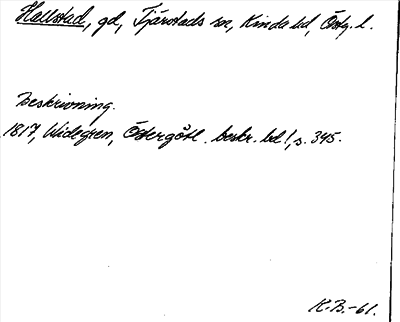 Hallstad, gd, Tjärstads sn, Kinda hd, Östg. l.
Beskrivning.
1817, Widegren, Östergötl. beskr. bd 1, s. 345.
K.B.-61.